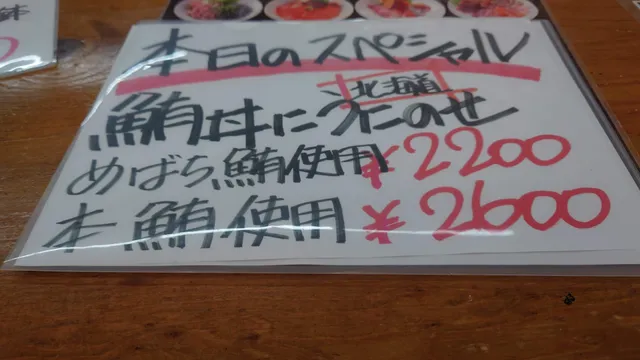 鉢
本日のスペシャル
北海道
鮪丼にうにのせ
めばち鮪使用 ¥2200
本鮪使用 ¥2600